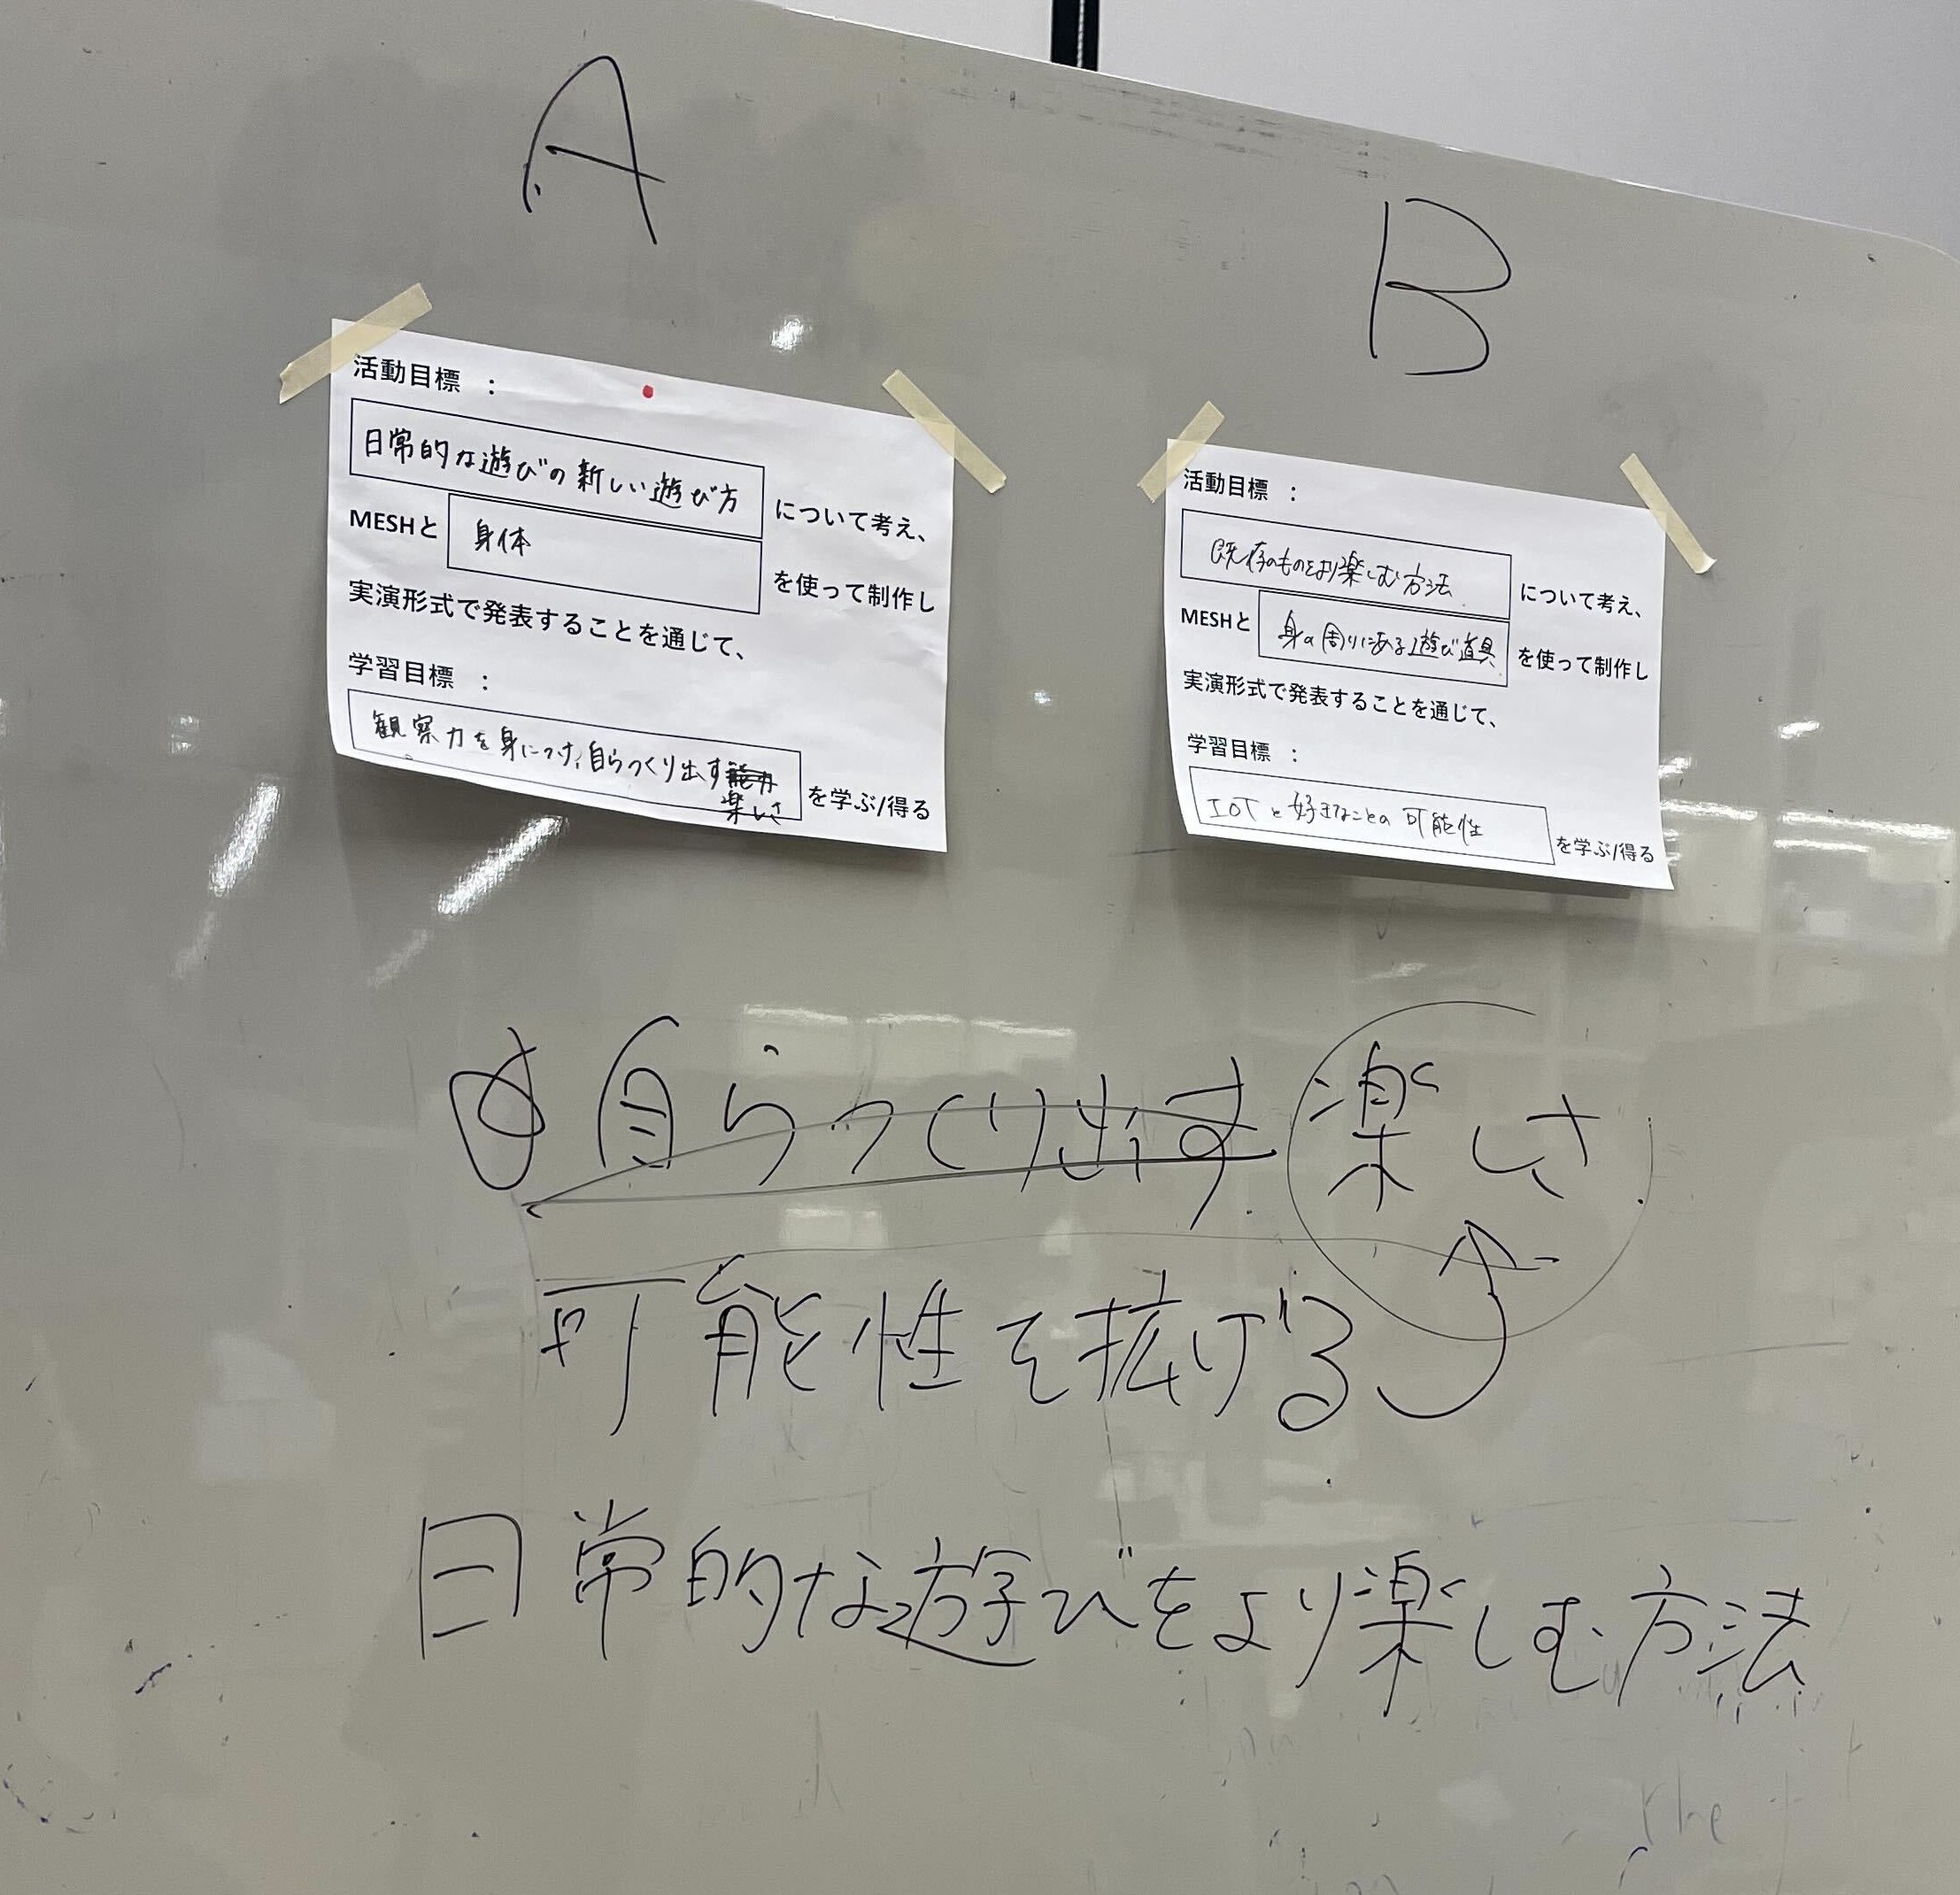 A
B
活動目標 :
日常的な遊びの新しい遊び方 について考え、
MESHと 身体 を使って制作し
実演形式で発表することを通じて、
学習目標 :
観察力を身につけ、自らつくり出す能力
楽しさ を学ぶ/得る
活動目標 :
既存のものをより楽しむ方法 について考え、
MESHと 身の周りにある遊び道具 を使って制作し
実演形式で発表することを通じて、
学習目標 :
IOTと好きなことの可能性 を学ぶ/得る
自らつくり出す楽しさ
可能性を拡げる
日常的な遊びをより楽しむ方法